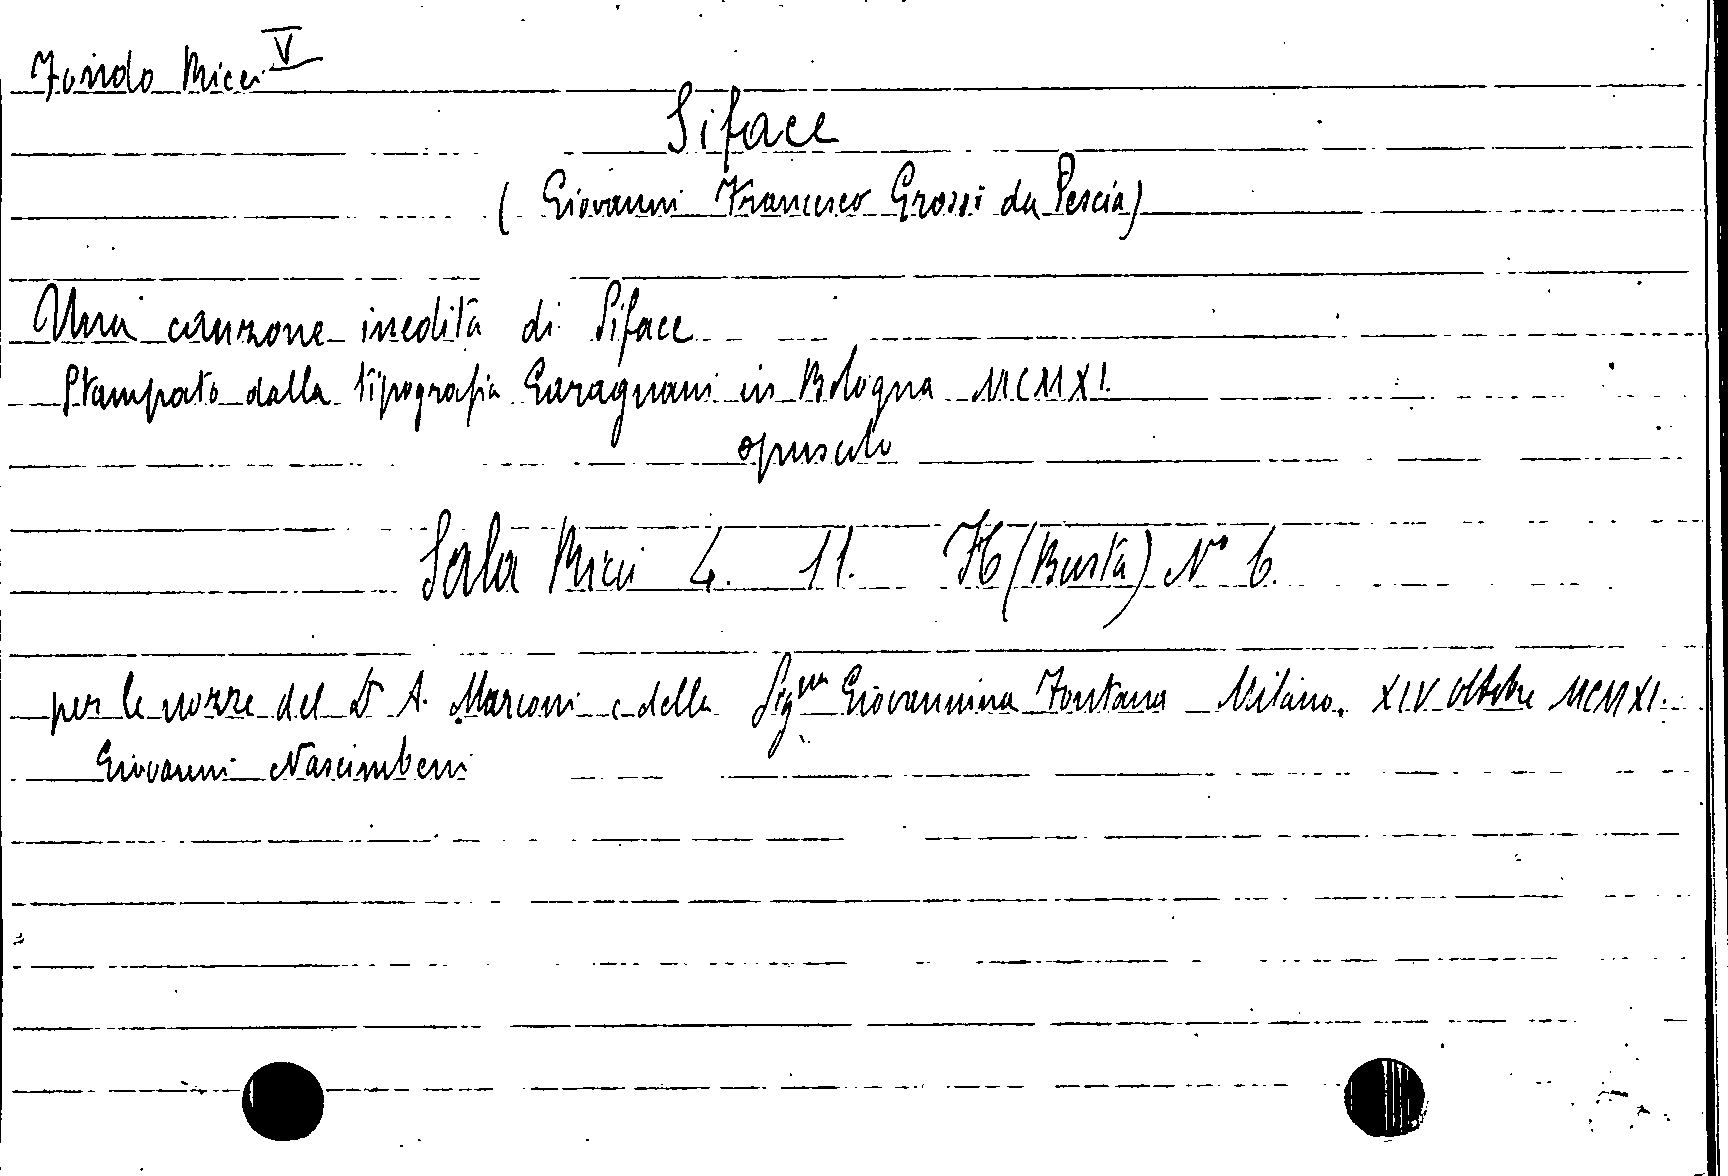 Fondo Ricci V
Siface
( Giovanni Francesco Grossi da Pescia)
Una canzone inedita di Siface
Stampato dalla tipografia Garagnani in Bologna MCMXI.
opuscolo
Sala Ricci 4. 11. H (Busta) N° 6.
per le nozze del Dr A. Marconi e della Sigra Giovannina Fontana Milano, XIV Ottobre MCMXI.
Giovanni Nascimbeni